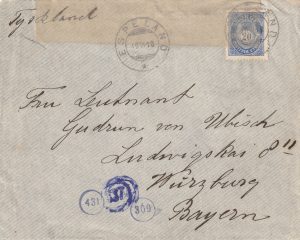 Tyskland
ESPELAND
20
Frau Leutnant
Gudrun von Ubisch
Ludwigskai 8 II
Würzburg
Bayern
431
309